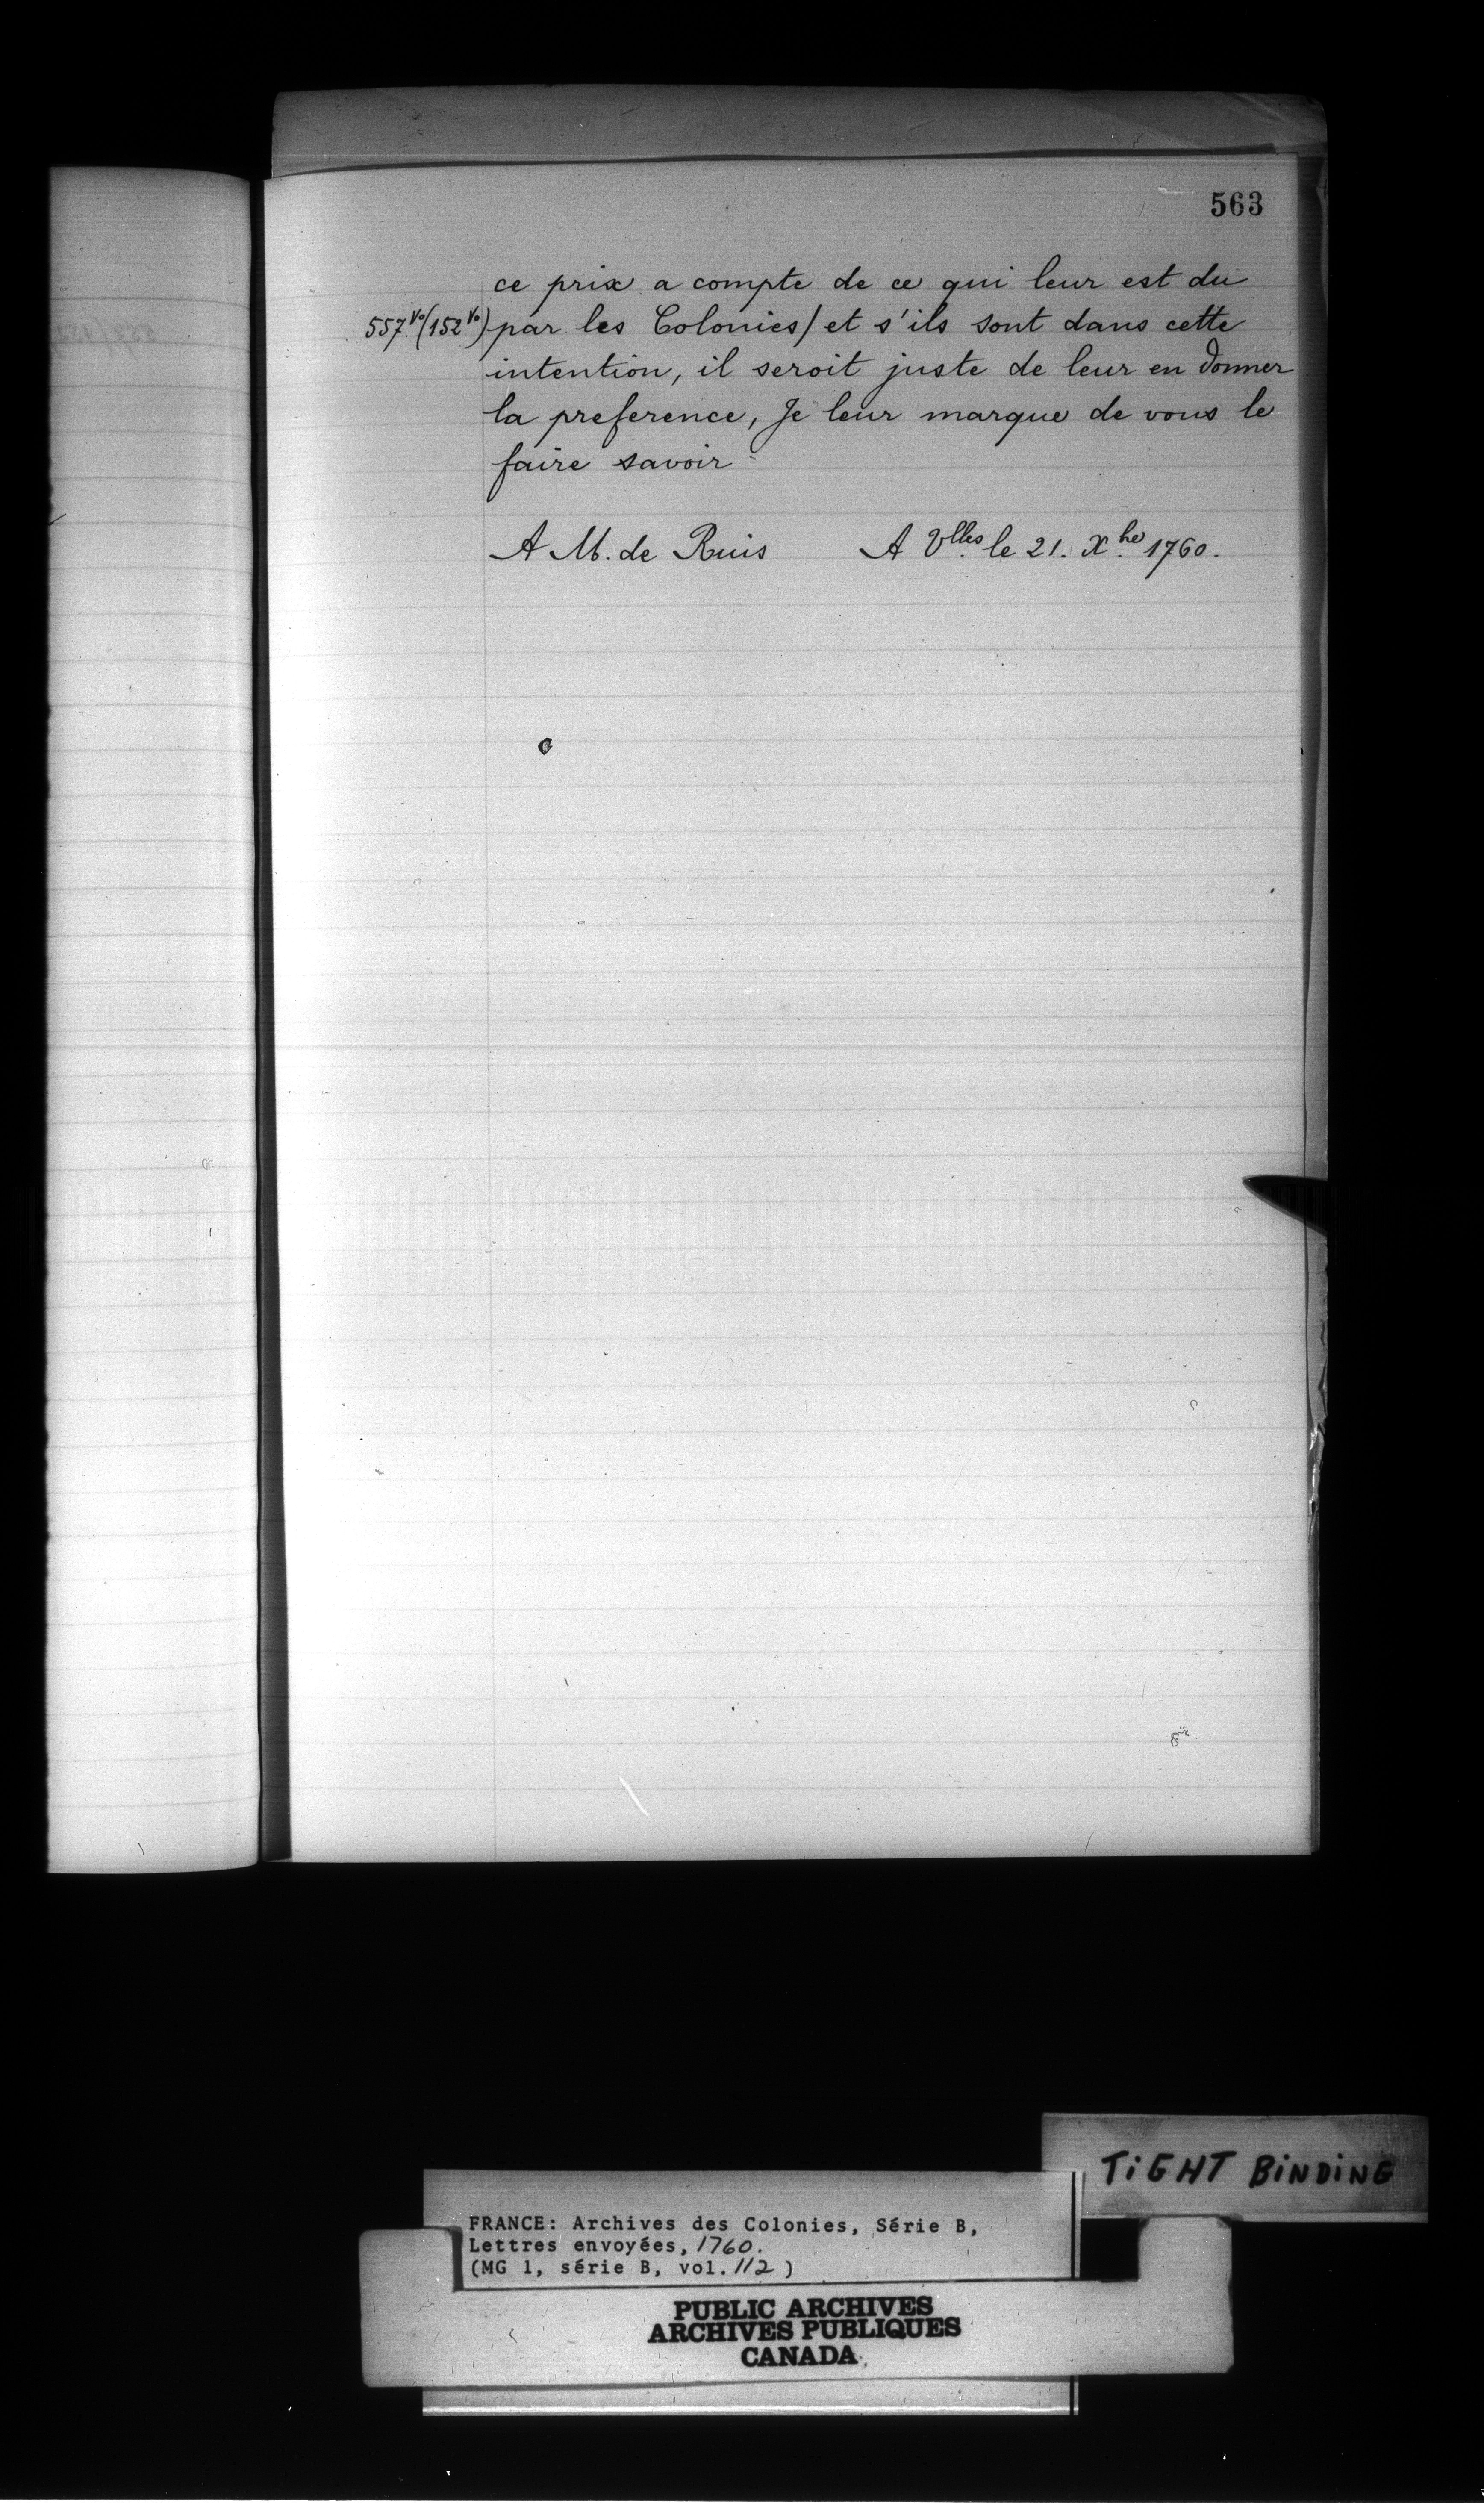 563
ce prix a compte de ce qui leur est du
557 Vo (152 Vo) par les Colonies/ et s'ils sont dans cette
intention, il seroit juste de leur en donner
la preference, Je leur marque de vous le
faire savoir
A M. de Ruis A Vlles le 21. Xbre 1760.
TiGHT BiNDiNG
FRANCE: Archives des Colonies, Série B,
Lettres envoyées, 1760.
(MG 1, série B, vol. 112)
PUBLIC ARCHIVES
ARCHIVES PUBLIQUES
CANADA